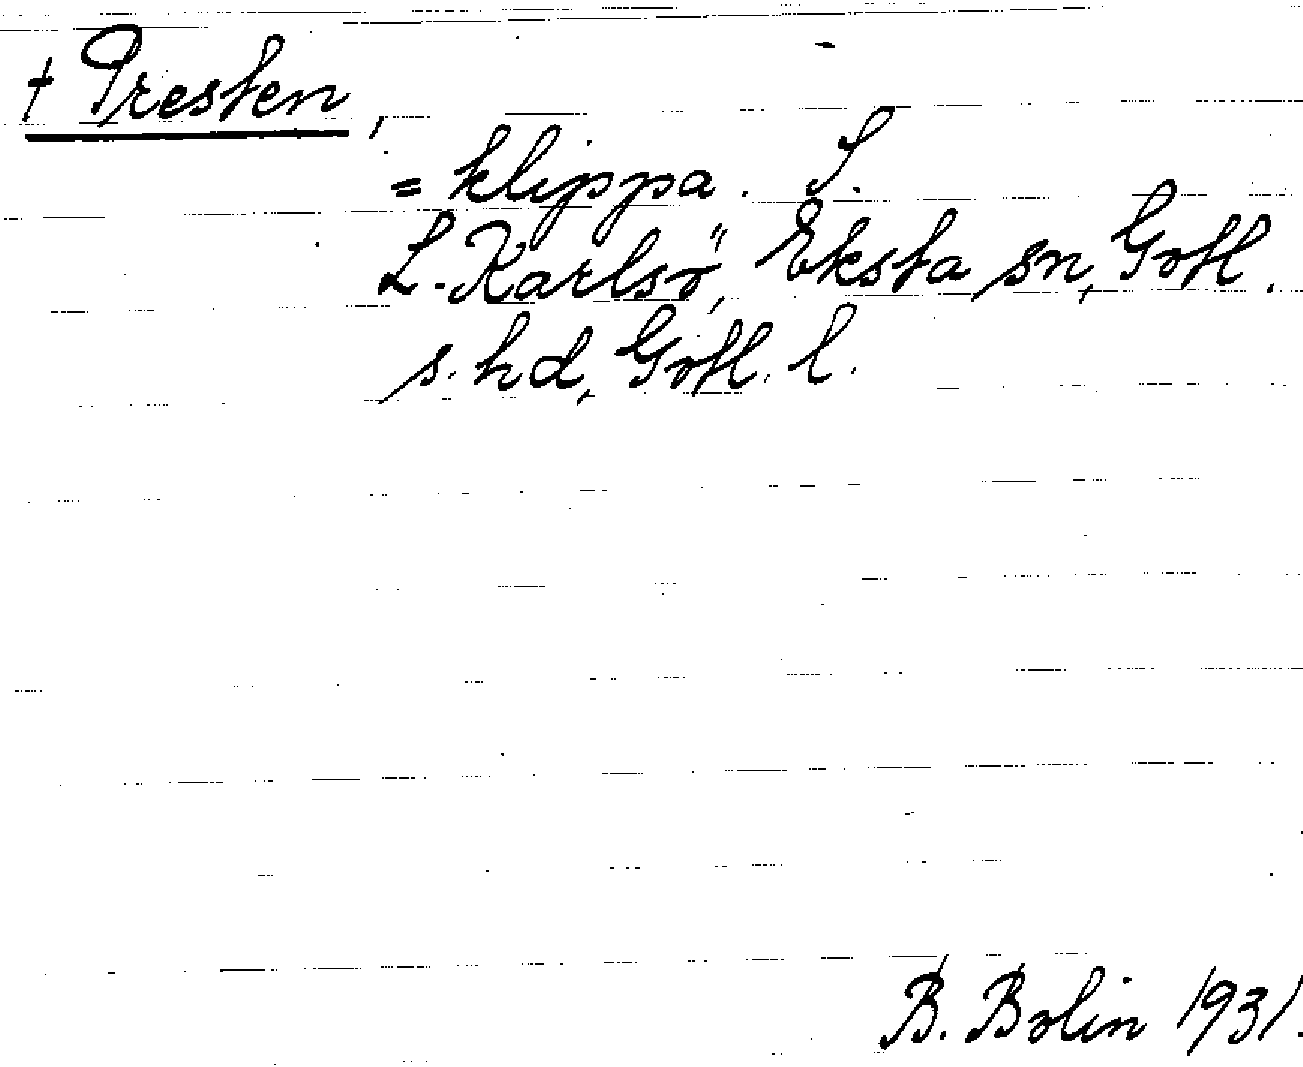 † Presten,
= klippa. S.
L. Karlsö, Eksta sn, Gotl.
s. hd, Gotl. l.
B. Bolin 1931.